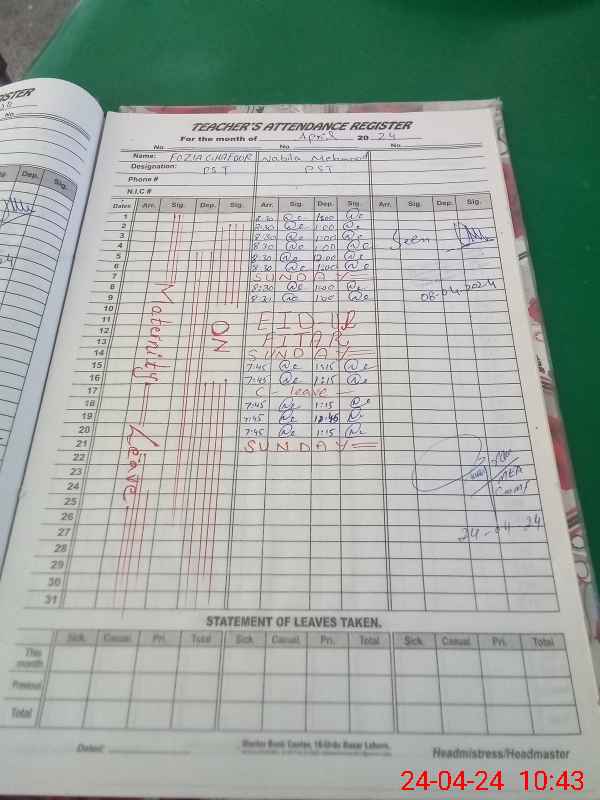 TEACHER'S ATTENDANCE REGISTER
For the month of April 20 24
No No. No.
Name: FOZIA GHAFOOR Nabila Mehmood
Designation: PST PST
Phone #
N.I.C #
Dates Arr. Sig. Dep. Sig. Arr. Sig. Dep. Sig. Arr. Sig. Dep. Sig.
1 8:30 1:00
2 8:30 1:00
3 8:30 1:00
4 8:30 1:00 Seen
5 8:30 12:00
6 8:30 1:00
7 SUNDAY
8 8:30 1:00
9 8:30 1:00 06-04-2024
10
11 EID-UL
12
13 FITAR
14 SUNDAY
15 7:45 1:15
16 7:45 1:15
17 C- leave
18 7:45 1:15
19 7:45 12:45
20 7:45 1:15
21 SUNDAY
22
23
24
25
26
27 24-04-24
28
29
30
31
ON
Maternity Leave
STATEMENT OF LEAVES TAKEN.
Sick. Casual. Pri. Total Sick. Casual. Pri. Total Sick. Casual. Pri. Total
This month
Previous
Total
Dated:
Master Book Center, 16-Urdu Bazar Lahore.
Headmistress/Headmaster
24-04-24 10:43